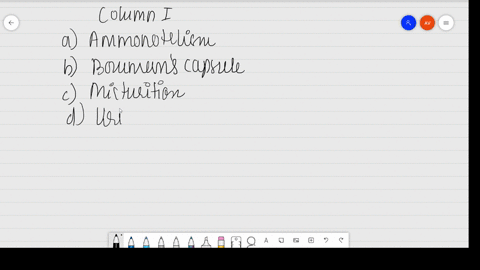 Column I
a) Ammonotelism
b) Bowman's capsule
c) Micturition
d) Uri